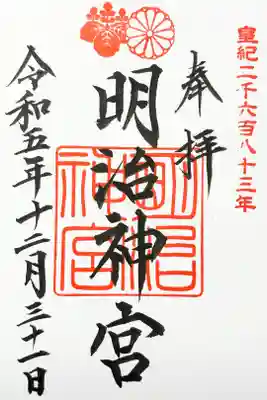 皇紀二千六百八十三年
奉拝
明治神宮
明治
神宮
令和五年十二月三十一日